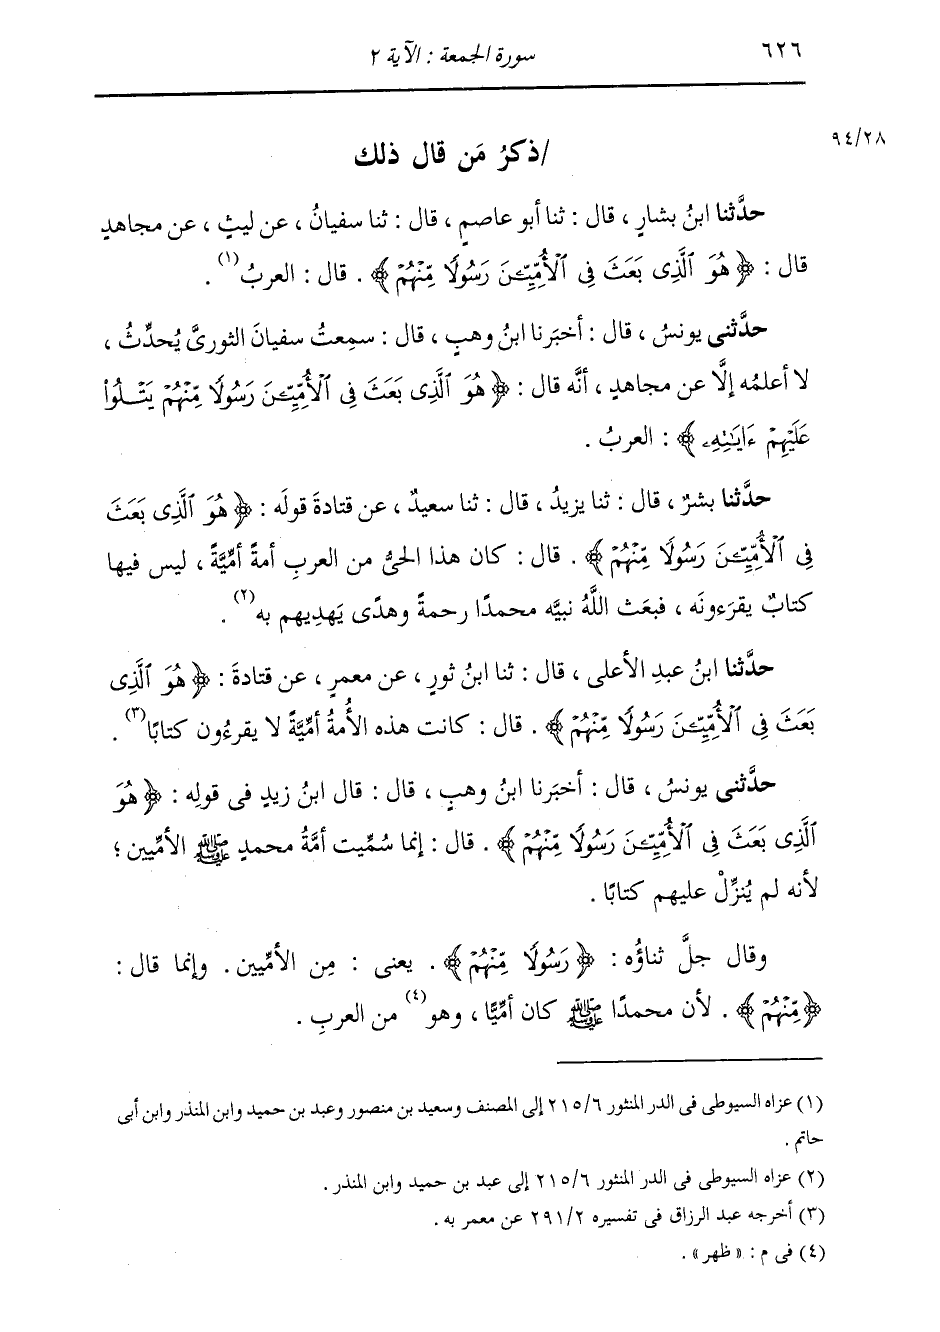 ٦٢٦
سورة الجمعة : الآية ٢
٩٤/٢٨
/ذكرُ مَن قال ذلك
حدَّثنا ابنُ بشارٍ ، قال : ثنا أبو عاصمٍ ، قال : ثنا سفيانُ ، عن ليثٍ ، عن مجاهدٍ
قال : ﴿ هُوَ ٱلَّذِى بَعَثَ فِى ٱلْأُمِّيِّـۧنَ رَسُولًا مِّنْهُمْ ﴾ . قال : العربُ (١) .
حدَّثنى يونسُ ، قال : أخبَرنا ابنُ وهبٍ ، قال : سمِعتُ سفيانَ الثورىَّ يُحدِّثُ ،
لا أعلمُه إلَّا عن مجاهدٍ ، أنَّه قال : ﴿ هُوَ ٱلَّذِى بَعَثَ فِى ٱلْأُمِّيِّـۧنَ رَسُولًا مِّنْهُمْ يَتْلُوا۟
عَلَيْهِمْ ءَايَـٰتِهِۦ ﴾ : العربُ .
حدَّثنا بشرٌ ، قال : ثنا يزيدُ ، قال : ثنا سعيدٌ ، عن قتادةَ قولَه : ﴿ هُوَ ٱلَّذِى بَعَثَ
فِى ٱلْأُمِّيِّـۧنَ رَسُولًا مِّنْهُمْ ﴾ . قال : كان هذا الحىُّ من العربِ أمةً أمِّيَّةً ، ليس فيها
كتابٌ يقرَءونَه ، فبعَث اللَّهُ نبيَّه محمدًا رحمةً وهدًى يَهدِيهم به (٢) .
حدَّثنا ابنُ عبدِ الأعلى ، قال : ثنا ابنُ ثورٍ ، عن معمرٍ ، عن قتادةَ : ﴿ هُوَ ٱلَّذِى
بَعَثَ فِى ٱلْأُمِّيِّـۧنَ رَسُولًا مِّنْهُمْ ﴾ . قال : كانت هذه الأُمةُ أمِّيَّةً لا يقرءُون كتابًا (٣) .
حدَّثنى يونسُ ، قال : أخبَرنا ابنُ وهبٍ ، قال : قال ابنُ زيدٍ فى قولِه : ﴿ هُوَ
ٱلَّذِى بَعَثَ فِى ٱلْأُمِّيِّـۧنَ رَسُولًا مِّنْهُمْ ﴾ . قال : إنما سُمِّيت أمَّةُ محمدٍ ﷺ الأمِّيين ؛
لأنه لم يُنزِّلْ عليهم كتابًا .
وقال جلَّ ثناؤُه : ﴿ رَسُولًا مِّنْهُمْ ﴾ . يعنى : مِن الأمِّيين . وإنما قال :
﴿ مِّنْهُمْ ﴾ . لأن محمدًا ﷺ كان أمِّيًّا ، وهو (٤) من العربِ .
(١) عزاه السيوطى فى الدر المنثور ٢١٥/٦ إلى المصنف وسعيد بن منصور وعبد بن حميد وابن المنذر وابن أبى
حاتم .
(٢) عزاه السيوطى فى الدر المنثور ٢١٥/٦ إلى عبد بن حميد وابن المنذر .
(٣) أخرجه عبد الرزاق فى تفسيره ٢٩١/٢ عن معمر به .
(٤) فى م : « ظهر » .